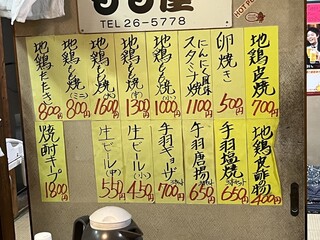 TEL 26-5778
地鶏皮焼
700円
卵焼き
500円
にんにく
スタミナ焼
1100円
地鶏もも焼
1000円
地鶏もも焼(中)
1300円
地鶏もも焼
1600円
地鶏もも焼(ミニ)
800円
地鶏たたき
800円
地鶏皮酢物
400円
手羽塩焼
650円
手羽唐揚
650円
手羽ギョーザ
700円
生ビール(小)
450円
生ビール(中)
550円
焼酎キープ
1800円